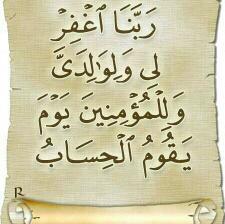 رَبَّنَا ٱغۡفِرۡ
لِى وَلِوَٰلِدَىَّ
وَلِلۡمُؤۡمِنِينَ يَوۡمَ
يَقُومُ ٱلۡحِسَابُ
R